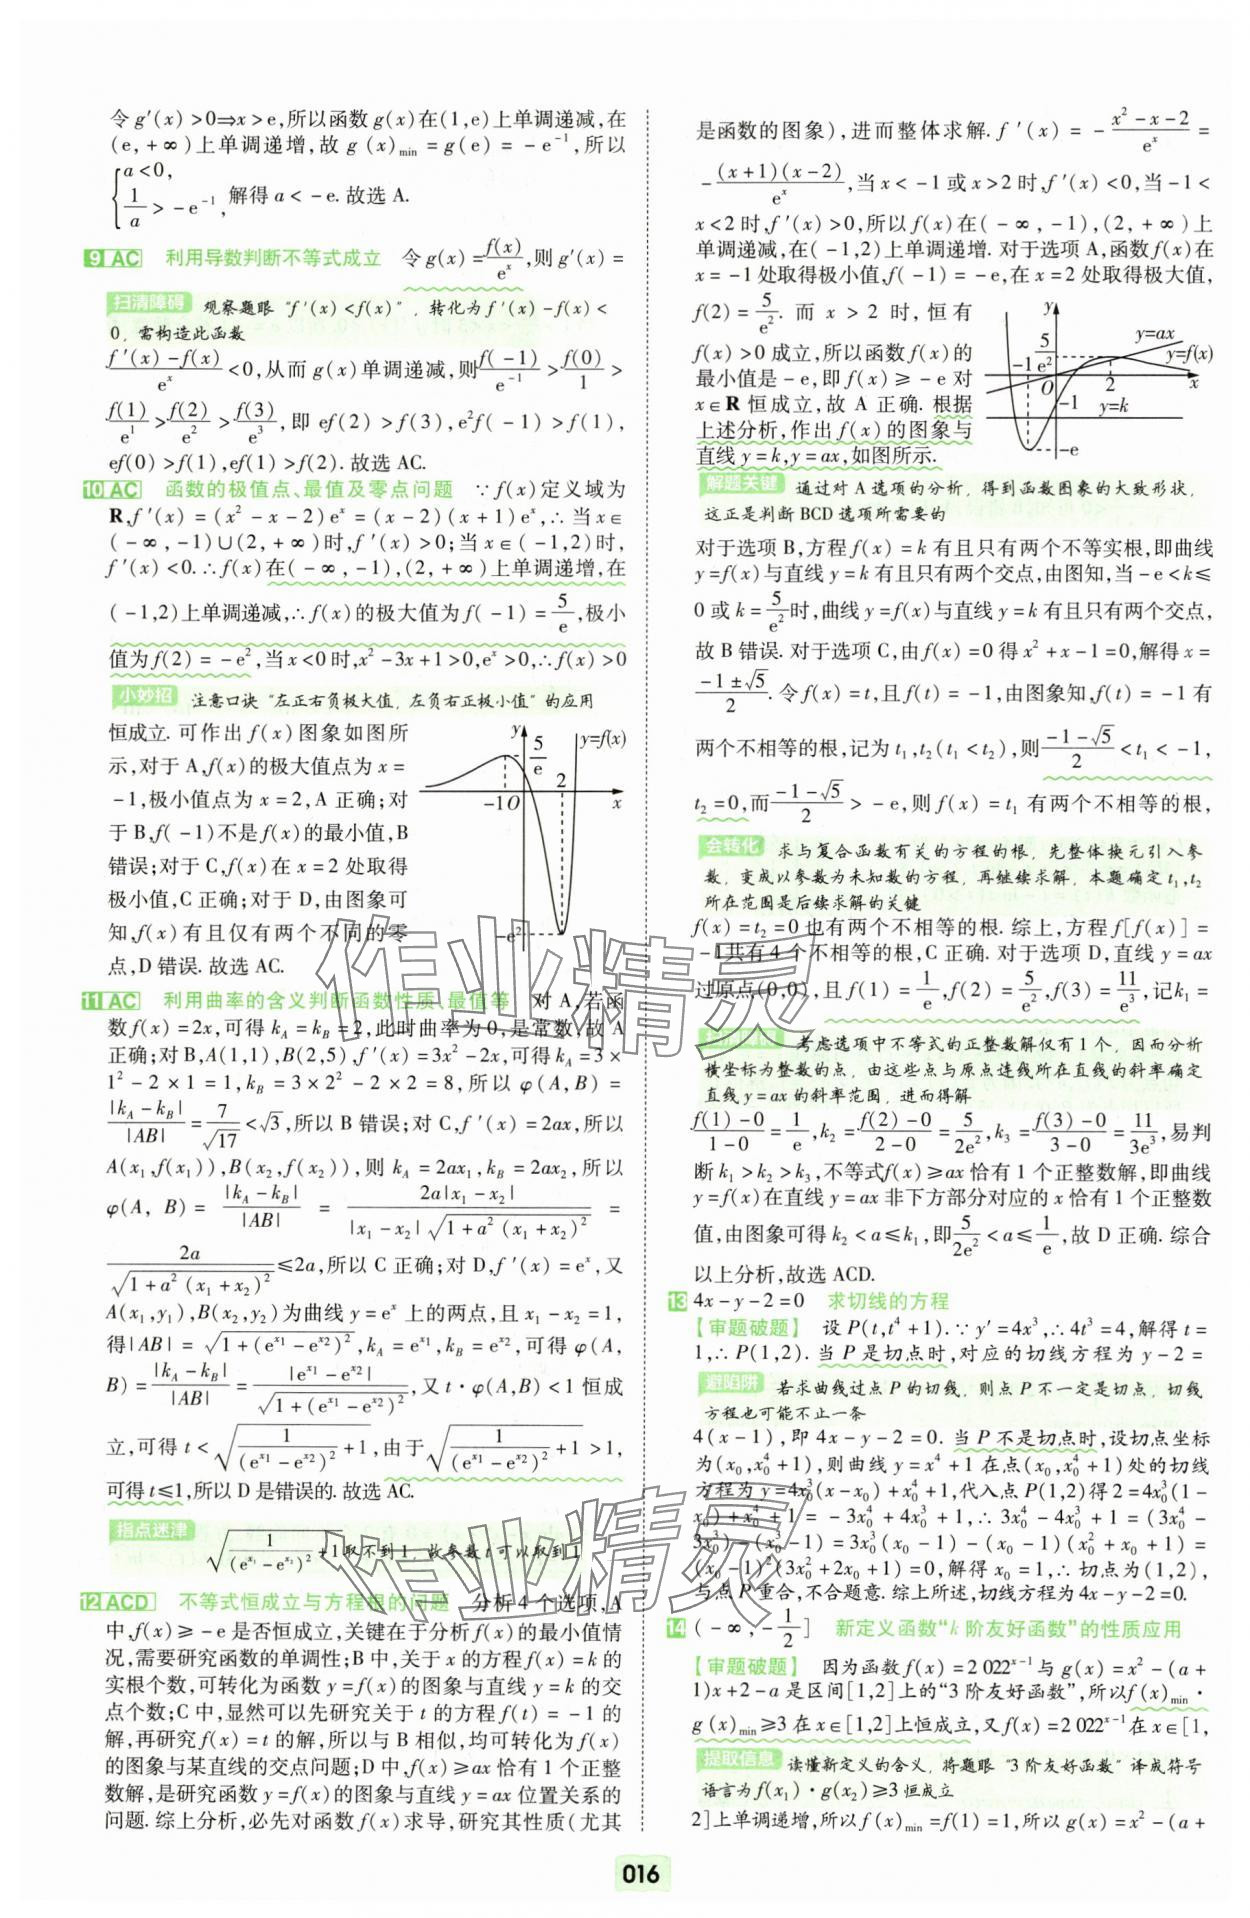 令g′(x)>0⇒x>e,所以函数g(x)在(1,e)上单调递减,在
(e,+∞)上单调递增,故g(x)min=g(e)=-e⁻¹,所以
{a<0, 1/a>-e⁻¹, 解得a<-e.故选A.
9 AC 利用导数判断不等式成立 令g(x)=f(x)/eˣ,则g′(x)=
扫清障碍 观察题眼“f′(x)<f(x)”,转化为f′(x)-f(x)<
0,需构造此函数
(f′(x)-f(x))/eˣ<0,从而g(x)单调递减,则f(-1)/e⁻¹>f(0)/1>
f(1)/e¹>f(2)/e²>f(3)/e³,即ef(2)>f(3),e²f(-1)>f(1),
ef(0)>f(1),ef(1)>f(2).故选AC.
10 AC 函数的极值点、最值及零点问题 ∵f(x)定义域为
R,f′(x)=(x²-x-2)eˣ=(x-2)(x+1)eˣ,∴当x∈
(-∞,-1)∪(2,+∞)时,f′(x)>0;当x∈(-1,2)时,
f′(x)<0.∴f(x)在(-∞,-1),(2,+∞)上单调递增,在
(-1,2)上单调递减,∴f(x)的极大值为f(-1)=5/e,极小
值为f(2)=-e²,当x<0时,x²-3x+1>0,eˣ>0,∴f(x)>0
小妙招 注意口诀“左正右负极大值,左负右正极小值”的应用
恒成立.可作出f(x)图象如图所
示,对于A,f(x)的极大值点为x=
-1,极小值点为x=2,A正确;对
于B,f(-1)不是f(x)的最小值,B
错误;对于C,f(x)在x=2处取得
极小值,C正确;对于D,由图象可
知,f(x)有且仅有两个不同的零
点,D错误.故选AC.
y 5/e y=f(x)
2
-1 O x
-e²
11 AC 利用曲率的含义判断函数性质、最值等 对A,若函
数f(x)=2x,可得kA=kB=2,此时曲率为0,是常数,故A
正确;对B,A(1,1),B(2,5),f′(x)=3x²-2x,可得kA=3×
1²-2×1=1,kB=3×2²-2×2=8,所以φ(A,B)=
|kA-kB|/|AB|=7/√17<√3,所以B错误;对C,f′(x)=2ax,所以
A(x₁,f(x₁)),B(x₂,f(x₂)),则kA=2ax₁,kB=2ax₂,所以
φ(A,B)=|kA-kB|/|AB|=2a|x₁-x₂|/(|x₁-x₂|√(1+a²(x₁+x₂)²))=
2a/√(1+a²(x₁+x₂)²)≤2a,所以C正确;对D,f′(x)=eˣ,又
A(x₁,y₁),B(x₂,y₂)为曲线y=eˣ上的两点,且x₁-x₂=1,
得|AB|=√(1+(e^x₁-e^x₂)²),kA=e^x₁,kB=e^x₂,可得φ(A,
B)=|kA-kB|/|AB|=|e^x₁-e^x₂|/√(1+(e^x₁-e^x₂)²),又t·φ(A,B)<1恒成
立,可得t<√(1/(e^x₁-e^x₂)²+1),由于√(1/(e^x₁-e^x₂)²+1)>1,
可得t≤1,所以D是错误的.故选AC.
指点迷津 √(1/(e^x₁-e^x₂)²+1)取不到1,故参数t可以取到1
12 ACD 不等式恒成立与方程根的问题 分析4个选项,A
中,f(x)≥-e是否恒成立,关键在于分析f(x)的最小值情
况,需要研究函数的单调性;B中,关于x的方程f(x)=k的
实根个数,可转化为函数y=f(x)的图象与直线y=k的交
点个数;C中,显然可以先研究关于t的方程f(t)=-1的
解,再研究f(x)=t的解,所以与B相似,均可转化为f(x)
的图象与某直线的交点问题;D中,f(x)≥ax恰有1个正整
数解,是研究函数y=f(x)的图象与直线y=ax位置关系的
问题.综上分析,必先对函数f(x)求导,研究其性质(尤其
是函数的图象),进而整体求解.f′(x)=-(x²-x-2)/eˣ=
-(x+1)(x-2)/eˣ,当x<-1或x>2时,f′(x)<0,当-1<
x<2时,f′(x)>0,所以f(x)在(-∞,-1),(2,+∞)上
单调递减,在(-1,2)上单调递增.对于选项A,函数f(x)在
x=-1处取得极小值,f(-1)=-e,在x=2处取得极大值,
f(2)=5/e².而x>2时,恒有
f(x)>0成立,所以函数f(x)的
最小值是-e,即f(x)≥-e对
x∈R恒成立,故A正确.根据
上述分析,作出f(x)的图象与
直线y=k,y=ax,如图所示.
y y=ax
5/e² y=f(x)
-1 O 2 x
-1 y=k
-e
解题关键 通过对A选项的分析,得到函数图象的大致形状,
这正是判断BCD选项所需要的
对于选项B,方程f(x)=k有且只有两个不等实根,即曲线
y=f(x)与直线y=k有且只有两个交点,由图知,当-e<k≤
0或k=5/e²时,曲线y=f(x)与直线y=k有且只有两个交点,
故B错误.对于选项C,由f(x)=0得x²+x-1=0,解得x=
(-1±√5)/2.令f(x)=t,且f(t)=-1,由图象知,f(t)=-1有
两个不相等的根,记为t₁,t₂(t₁<t₂),则(-1-√5)/2<t₁<-1,
t₂=0,而(-1-√5)/2>-e,则f(x)=t₁有两个不相等的根,
会转化 求与复合函数有关的方程的根,先整体换元引入参
数,变成以参数为未知数的方程,再继续求解,本题确定t₁,t₂
所在范围是后续求解的关键
f(x)=t₂=0也有两个不相等的根.综上,方程f[f(x)]=
-1共有4个不相等的根,C正确.对于选项D,直线y=ax
过原点(0,0),且f(1)=1/e,f(2)=5/e²,f(3)=11/e³,记k₁=
扫清障碍 考虑选项中不等式的正整数解仅有1个,因而分析
横坐标为整数的点,由这些点与原点连线所在直线的斜率确定
直线y=ax的斜率范围,进而得解
(f(1)-0)/(1-0)=1/e,k₂=(f(2)-0)/(2-0)=5/2e²,k₃=(f(3)-0)/(3-0)=11/3e³,易判
断k₁>k₂>k₃,不等式f(x)≥ax恰有1个正整数解,即曲线
y=f(x)在直线y=ax非下方部分对应的x恰有1个正整数
值,由图象可得k₂<a≤k₁,即5/2e²<a≤1/e,故D正确.综合
以上分析,故选ACD.
13 4x-y-2=0 求切线的方程
【审题破题】 设P(t,t⁴+1).∵y′=4x³,∴4t³=4,解得t=
1,∴P(1,2).当P是切点时,对应的切线方程为y-2=
避陷阱 若求曲线过点P的切线,则点P不一定是切点,切线
方程也可能不止一条
4(x-1),即4x-y-2=0.当P不是切点时,设切点坐标
为(x₀,x₀⁴+1),则曲线y=x⁴+1在点(x₀,x₀⁴+1)处的切线
方程为y=4x₀³(x-x₀)+x₀⁴+1,代入点P(1,2)得2=4x₀³(1-
x₀)+x₀⁴+1=-3x₀⁴+4x₀³+1,∴3x₀⁴-4x₀³+1=(3x₀⁴-
3x₀³)-(x₀³-1)=3x₀³(x₀-1)-(x₀-1)(x₀²+x₀+1)=
(x₀-1)²(3x₀²+2x₀+1)=0,解得x₀=1,∴切点为(1,2),
与点P重合,不合题意.综上所述,切线方程为4x-y-2=0.
14 (-∞,-1/2] 新定义函数“k阶友好函数”的性质应用
【审题破题】 因为函数f(x)=2 022ˣ⁻¹与g(x)=x²-(a+
1)x+2-a是区间[1,2]上的“3阶友好函数”,所以f(x)min·
g(x)min≥3在x∈[1,2]上恒成立,又f(x)=2 022ˣ⁻¹在x∈[1,
提取信息 读懂新定义的含义,将题眼“3阶友好函数”译成符号
语言为f(x₁)·g(x₂)≥3恒成立
2]上单调递增,所以f(x)min=f(1)=1,所以g(x)=x²-(a+
016
作业精灵
作业精灵